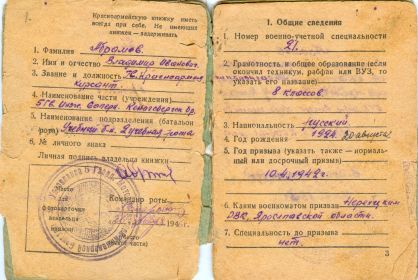 Красноармейскую книжку иметь
всегда при себе. Не имеющих
книжек — задерживать
1. Фамилия Абрамов.
2. Имя и отчество Владимир Иванович.
3. Звание и должность Красноармеец
Курсант.
4. Наименование части (учреждения)
5. Наименование подразделения (батальон
рота) Учебный б-н. 2 учебная рота
6. № личного знака
Личная подпись владельца книжки
Место
для
фотокарточки
владельца
книжки
Командир роты
194 г.
части)
I. Общие сведения
1. Номер военно-учетной специальности
21.
2. Грамотность и общее образование (если
окончил техникум, рабфак или ВУЗ, то
указать его название)
8 классов.
3. Национальность русский
4. Год рождения 1924 20 августа
5. Год призыва (указать также — нормаль-
ный или досрочный призыв)
10.4.1942 г.
6. Каким военкоматом призван Нерехтским
РВК, Ярославской области.
7. Специальность до призыва
нет.
3